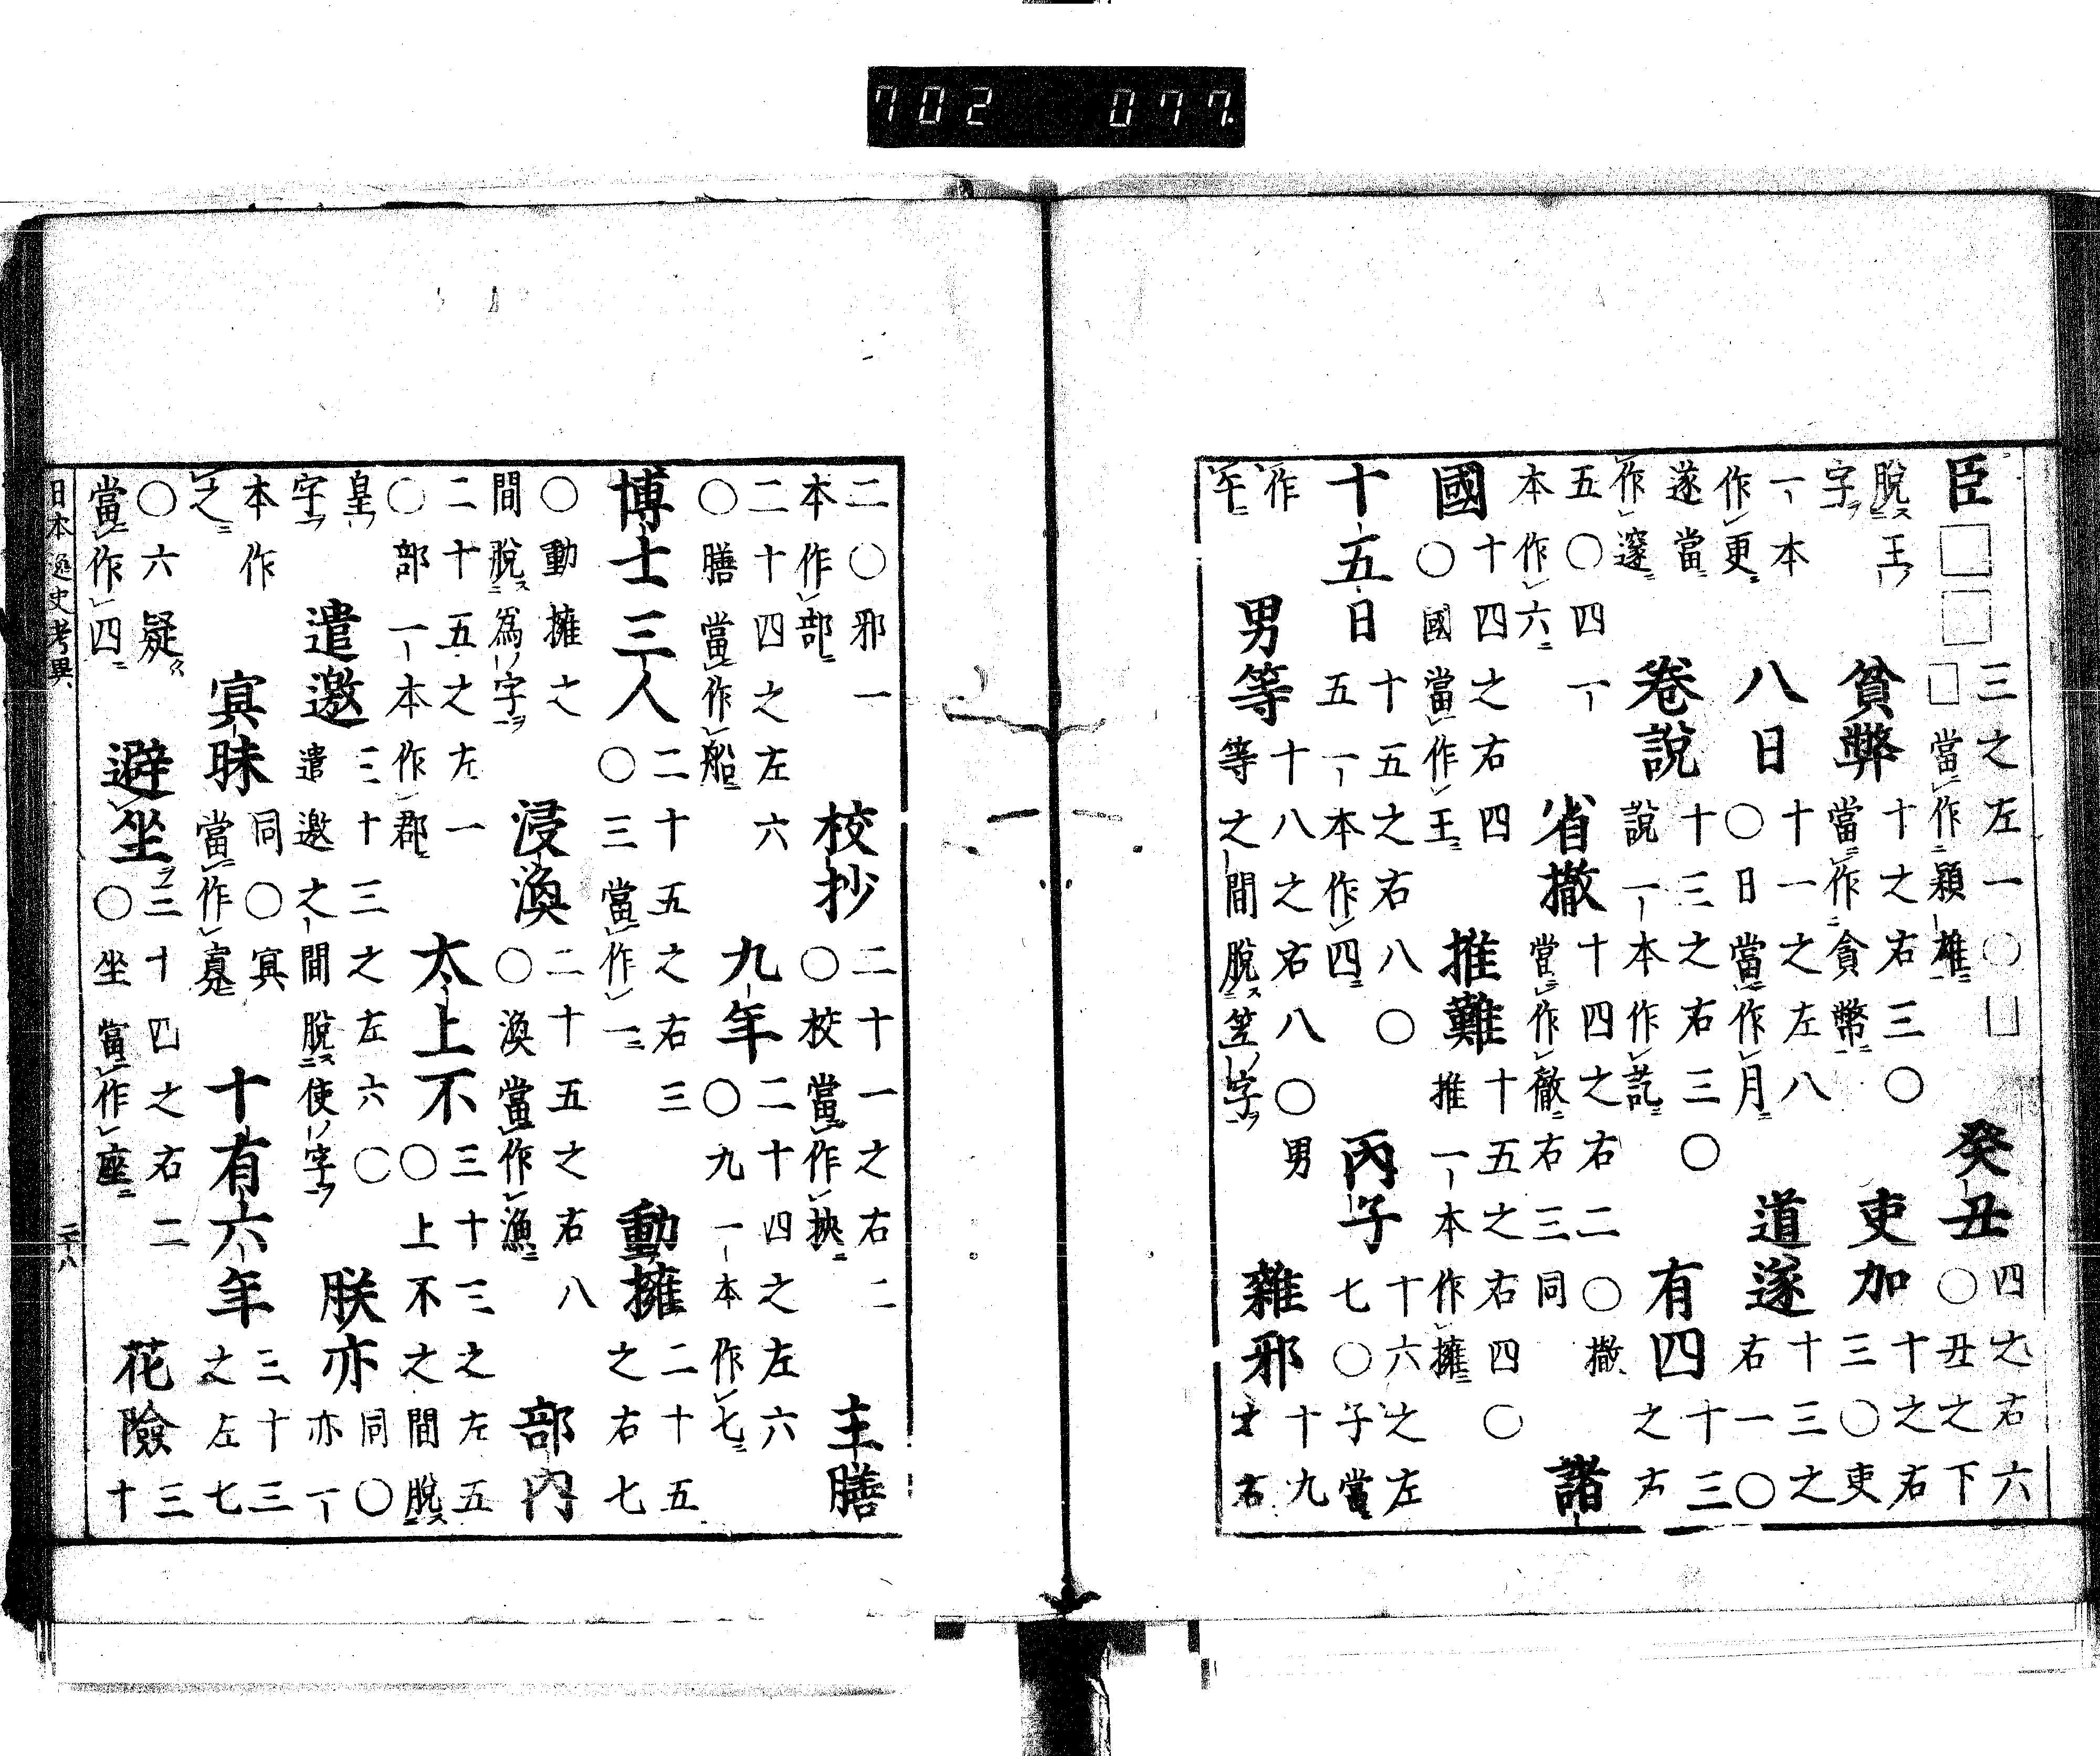 臣□□三之左一〇□□當作穎雄癸丑四之右六〇丑之下
脫王字貧弊十之右三〇當作貪幣吏加十之右三〇吏
一本作更八日十一之左八〇日當作月道遂十三之右一〇
遂當作邃卷說十三之右三〇說一本作訖有四十三之右
五〇四一本作六省撒十四之右二〇撒當作徹右三同諸
國十四之右四〇國當作王推難十五之右四〇推一本作擁
十五日十五之右八〇五一本作四丙子十六之左七〇子當
作午男等十八之右八〇男等之間脫笠字雜邪十九之右
二〇邪一本作部校抄二十一之右二〇校當作挾主膳
二十四之左六〇膳當作船九年二十四之左六〇九一本作七
博士三人二十五之右三〇三當作一動擁二十五之右七
〇動擁之間脫為字浸渙二十五之右八〇渙當作漁部內
二十五之左一〇部一本作郡太上不三十三之左五〇上不之間脫
皇字遣邀三十三之左六〇遣邀之間脫使字朕亦同〇亦一
本作之寘昧同〇寘當作寔十有六年三十三之左七
〇六疑當作四避坐三十四之右二〇坐當作座花險三十
日本逸史考異 二十八
702 077